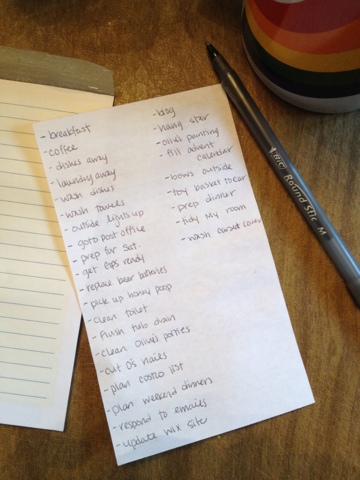 - breakfast
- coffee
- dishes away
- laundry away
- wash dishes
- wash towels
- outside lights up
- go to post office
- prep for Sat.
- get
ready
- replace
batteries
- pick up
poop
- clean toilet
- flush tub drain
- clean
potties
- cut O's nails
- plan costco list
- plan weekend dinners
- respond to emails
- update wix site
- blog
- hang star
painting
- fill advent
calendar
- bows outside
- toy basket to car
- prep dinner
- tidy my room
- wash
cover
BIC Round Stic M